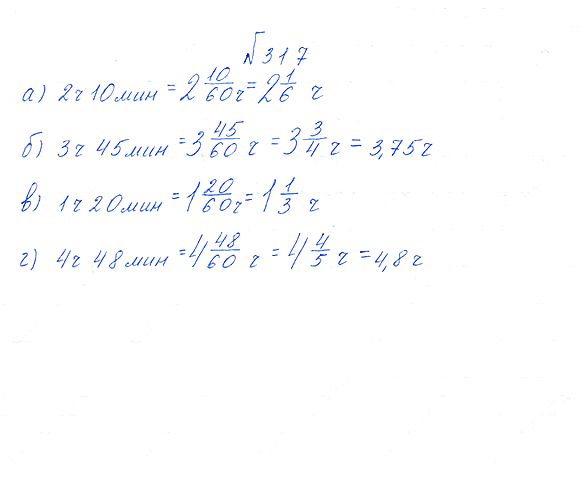 №317
а) 2ч 10мин = 2 10/60 ч = 2 1/6 ч
б) 3ч 45мин = 3 45/60 ч = 3 3/4 ч = 3,75ч
в) 1ч 20мин = 1 20/60 ч = 1 1/3 ч
г) 4ч 48мин = 4 48/60 ч = 4 4/5 ч = 4,8ч